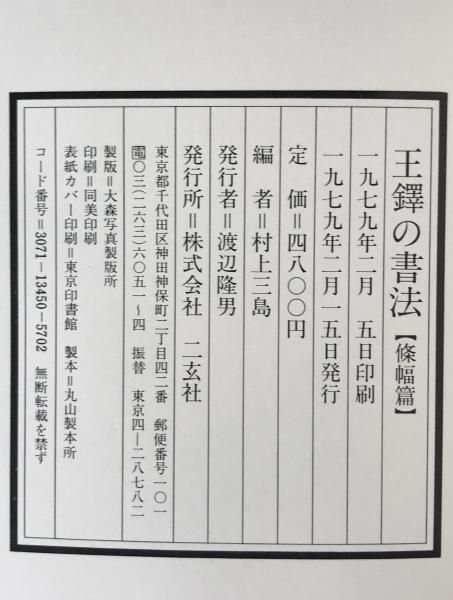 王鐸の書法【條幅篇】
一九七九年二月　五日印刷
一九七九年二月一五日発行
定　価＝四八〇〇円
編　者＝村上三島
発行者＝渡辺隆男
発行所＝株式会社　二玄社
東京都千代田区神田神保町二丁目四二番　郵便番号一〇一
電〇三(二六三)六〇五一〜四　振替　東京四―二八七八二
製版＝大森写真製版所
印刷＝同美印刷
表紙カバー印刷＝東京印書館　製本＝丸山製本所
コード番号＝3071－13450－5702　無断転載を禁ず